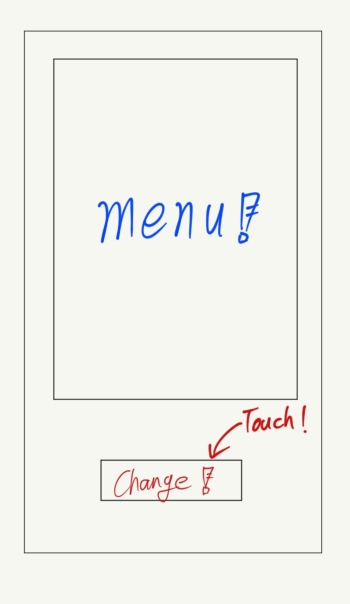 menu!
Touch!
Change!